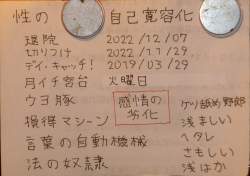 性の 自己寛容化
退院 2022/12/07
切りつけ 2022/11/29
デイ・キャッチ! 2019/03/29
月イチ宮台 火曜日
ウヨ豚
感情の
劣化
ケツ舐め野郎
損得マシーン
浅ましい
言葉の自動機械
ヘタレ
さもしい
法の奴隷
浅はか